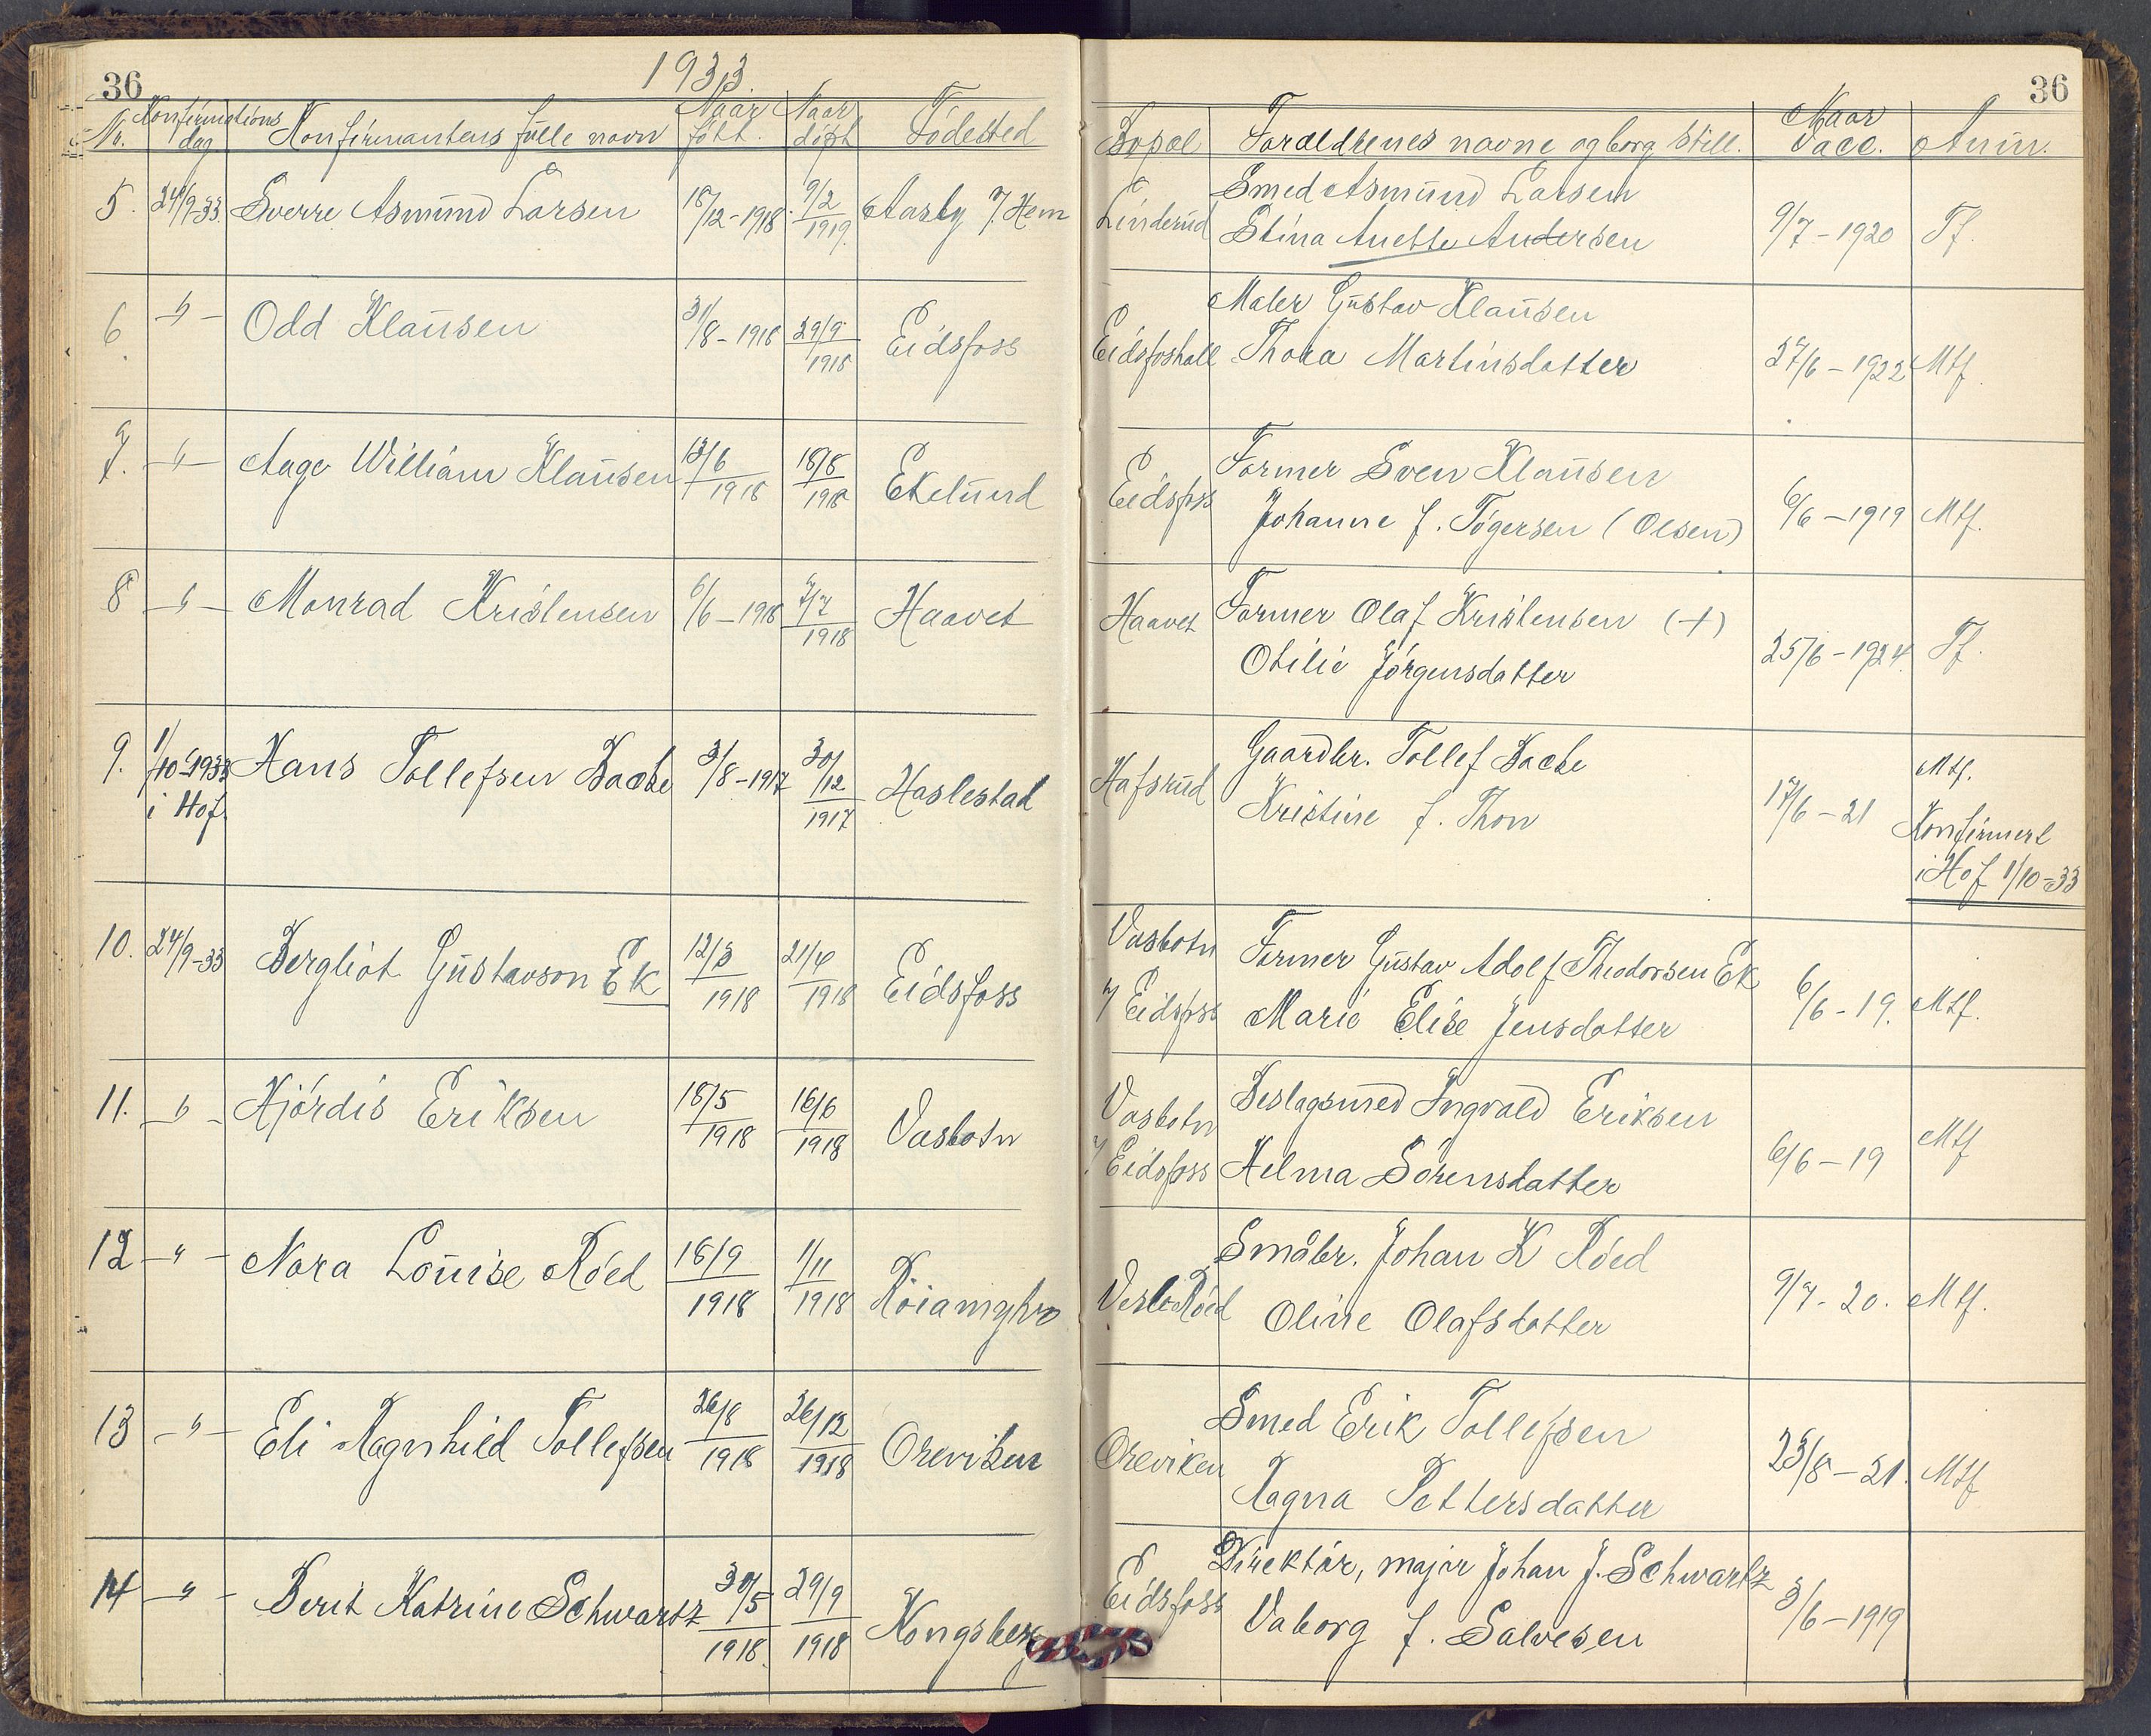 36
1933.
36
Nr. Konfirmations dag. Konfirmantens fulle navn Naar født. Naar døpt Fødested Bopæl Forældrenes navne og borg. still. Naar vacc. Anm.
5. 24/9-33. Sverre Asmund Larsen 18/12-1918. 9/2 1919. Aasly Hem Linderud Smed Asmund Larsen
Stina Anette Andersen 9/7-1920 Tf.
6. -"- Odd Klausen 31/8-1918 29/9 1918 Eidsfoss Eidsfoshall Maler Gustav Klausen
Thora Martinsdatter 27/6-1922 Mtf.
7. -"- Aage William Klausen 13/6 1918 18/8 1918 Ekelund Eidsfoss Former Sven Klausen
Johanne f. Tøgersen (Olsen) 6/6-1919 Mtf.
8 -"- Monrad Kristensen 6/6-1918 7/7 1918 Haavet Haavet Former Olaf Kristensen (+)
Otilie Jørgensdatter 25/6-1924. Tf.
9. 1/10-1933 i Hof. Hans Tollefsen Bache 3/8-1917 30/12 1917 Haslestad Hafsrud Gaardbr. Tollef Bache
Kristine f. Thon 17/6-21 Mtf.
Konfirmert
i Hof 1/10-33
10. 24/9-33 Bergliot Gustavson Ek 12/3 1918 21/4 1918 Eidsfoss Vasbotn Eidsfoss Former Gustav Adolf Theodorsen Ek
Marie Elise Jensdatter 6/6-19. Mtf.
11. -"- Hjørdis Eriksen 18/5 1918 16/6 1918 Vasbotn Vasbotn Eidsfoss Beslagsmed Ingvald Eriksen
Helma Sørensdatter 6/6-19 Mtf
12 -"- Nora Louise Røed 18/9 1918 1/11 1918 Vesle Røed Småbr. Johan K Røed
Oline Olafsdatter 9/7-20. Mtf.
13 -"- Eli Ragnhild Tollefsen 26/8 1918 26/12 1918 Oreviken Oreviken Smed Erik Tollefsen
Ragna Pettersdatter 25/8-21. Mtf
14 -"- Berit Katrine Schwartz 30/5 1918. 29/9 1918 Kongsberg Eidsfoss Direktør, major Johan J. Schwartz
Vaborg f. Salvesen 3/6-1919